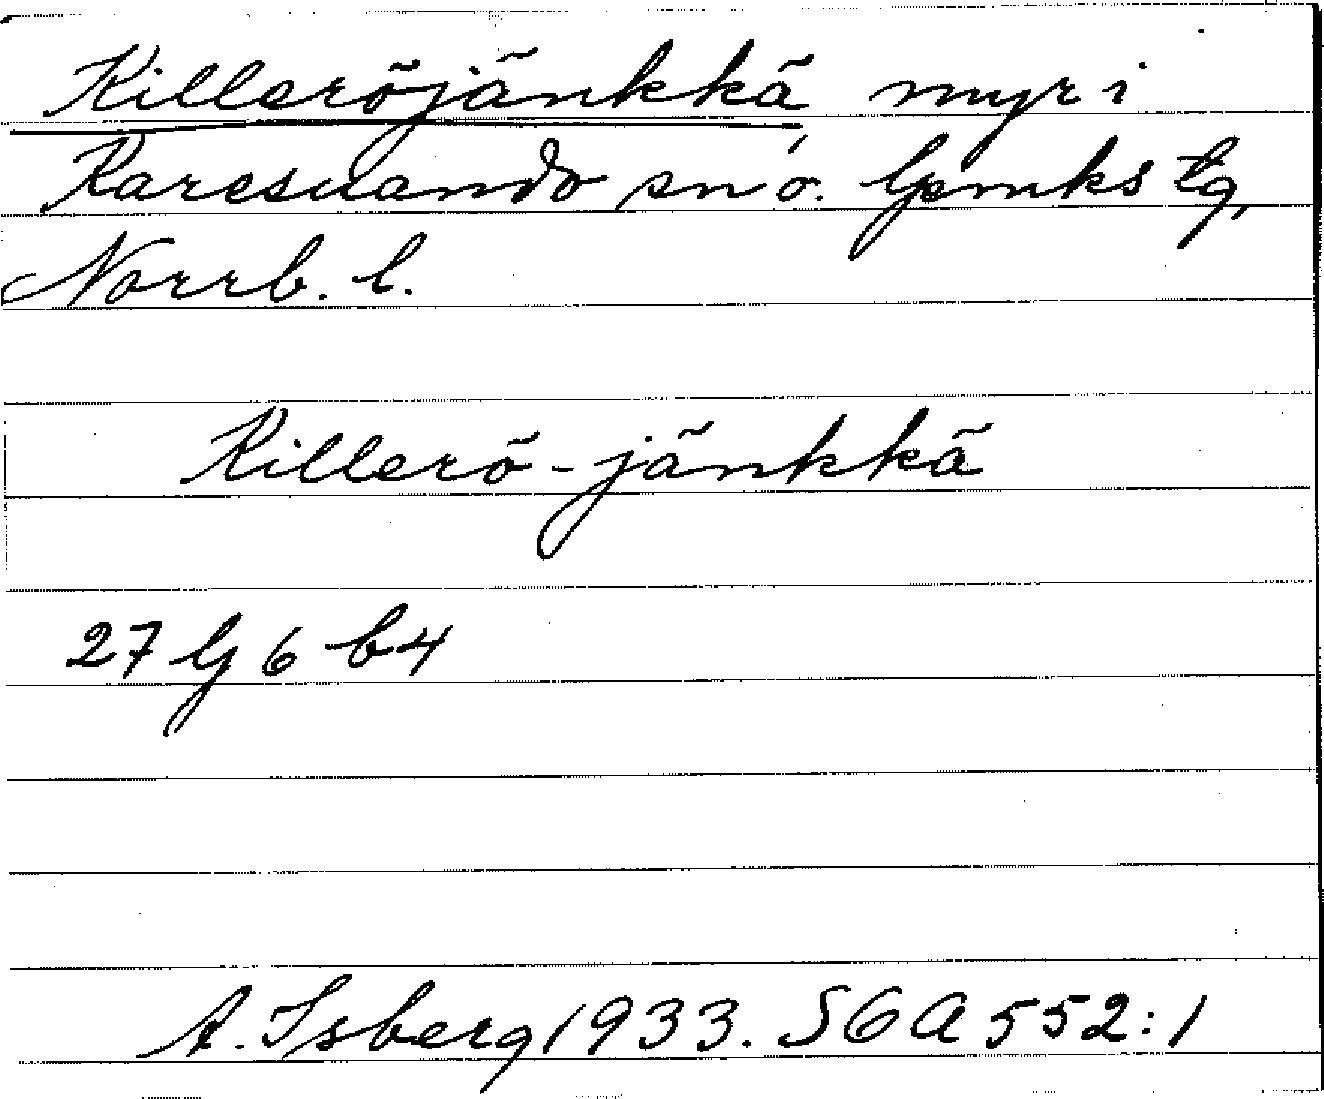 Killeröjänkkä myr i
Karesuando sn o. Gemks tg,
Norrb. l.
Killerö-jänkkä
27 G 6 b4
A. Isberg 1933. SOA 552:1